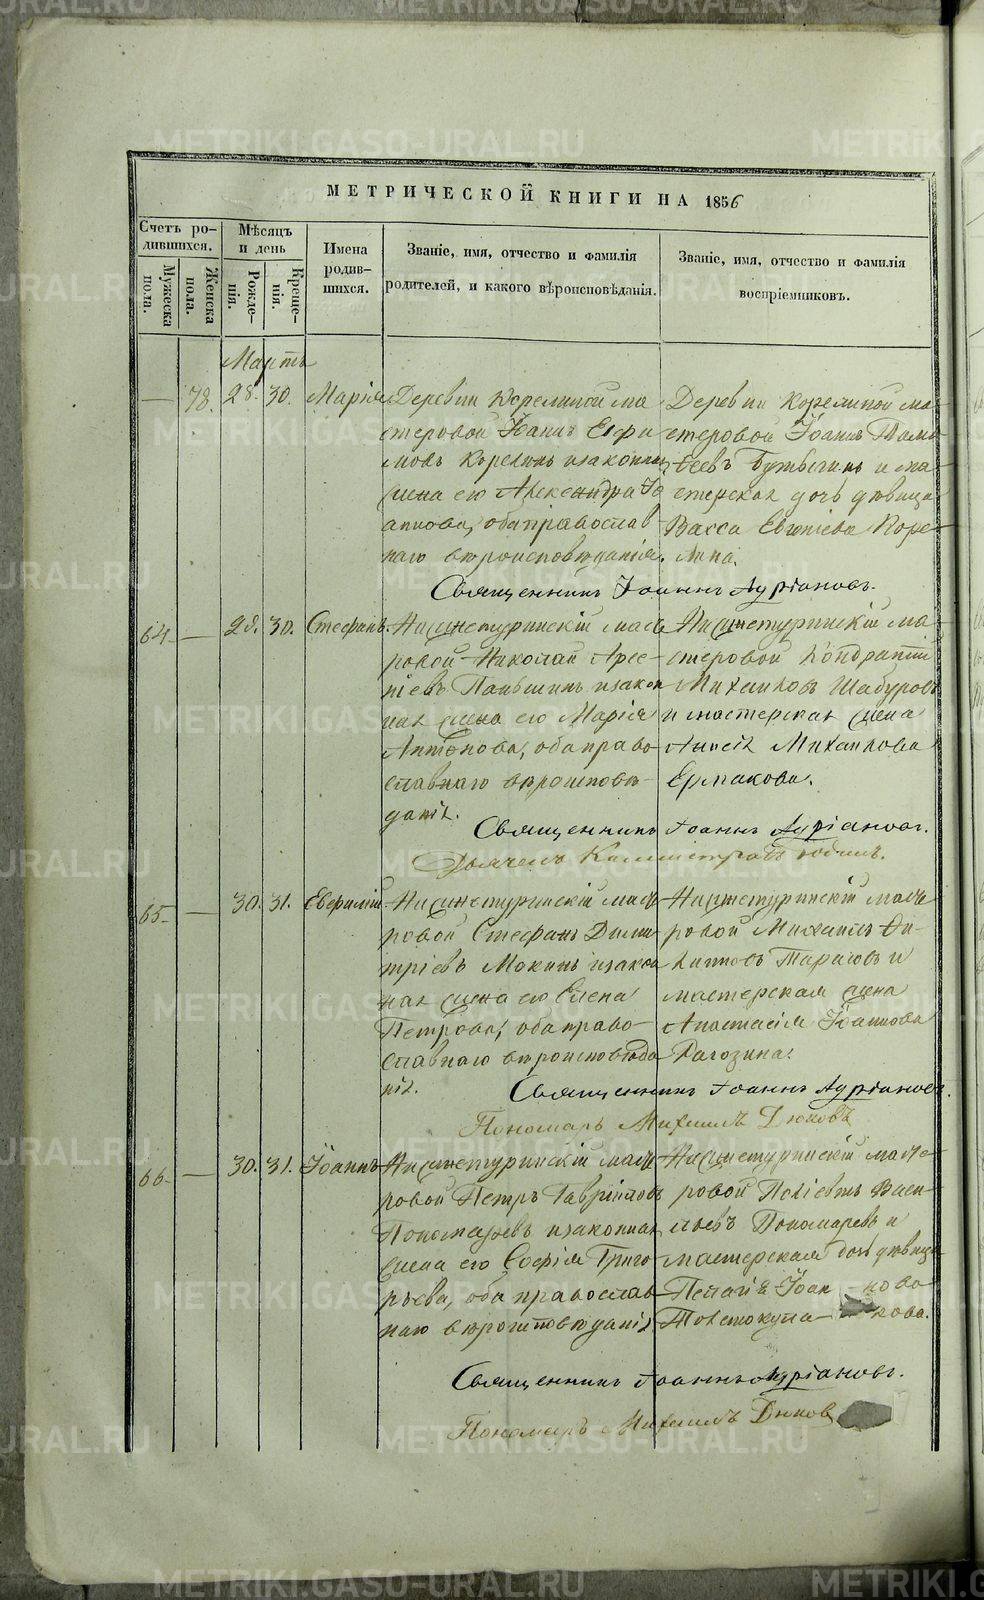 МЕТРИЧЕСКОЙ КНИГИ НА 1856
Счетъ ро-
дившихся.
Мужеска
пола.
Женска
пола.
Мѣсяцъ
и день
Рожде-
нія.
Креще-
нія.
Имена
родив-
шихся.
Званіе, имя, отчество и фамилія
родителей, и какого вѣроисповѣданія.
Званіе, имя, отчество и фамилія
воспріемниковъ.
Мартъ
— 78. 28. 30. Марія
Деревни Корелиной ма
стеровой Іоаннъ Евфи
мовъ Корелинъ и законная
жена его Александра Іо
аннова, оба православ
наго вѣроисповѣданія.
Деревни Корелиной ма-
стеровой Іоаннъ
и ма-
стерская дочь дѣвица
Васса Евгеніева Коре-
лина.
Священникъ Іоаннъ Адріановъ.
64 — 28. 30. Стефанъ.
Нижнетуринскій масте
ровой Николай Арсе-
ніевъ Паньшинъ и закон
ная жена его Марія
Антонова, оба право-
славнаго вѣроисповѣ-
данія.
Нижнетуринскій ма-
стеровой Кондратій
Михайловъ Шабуровъ
и мастерская жена
Анисія Михайлова
Ермакова.
Священникъ Іоаннъ Адріановъ.
65 — 30. 31. Евфимій
Нижнетуринскій масте
ровой Стефанъ Дими
тріевъ Мокинъ и закон
ная жена его Елена
Петрова, оба право-
славнаго вѣроисповѣда
нія.
Нижнетуринскій масте
ровой Михаилъ Фи-
липповъ Тарасовъ и
мастерская жена
Анастасія Іоаннова
Рагозина.
Священникъ Іоаннъ Адріановъ.
Пономарь Михаилъ Дюковъ
66 — 30. 31. Іоаннъ
Нижнетуринскій масте
ровой Петръ Гавріиловъ
Пономаревъ и законная
жена его Софія Григо
рьева, оба православ
наго вѣроисповѣданія
Нижнетуринскій масте-
ровой Полієвктъ Васи-
льевъ Пономаревъ и
мастерская дочь дѣвица
Пелагія Іоан нова
Священникъ Іоаннъ Адріановъ.
Пономарь Михаилъ Дюков
METRIKI.GASO-URAL.RU